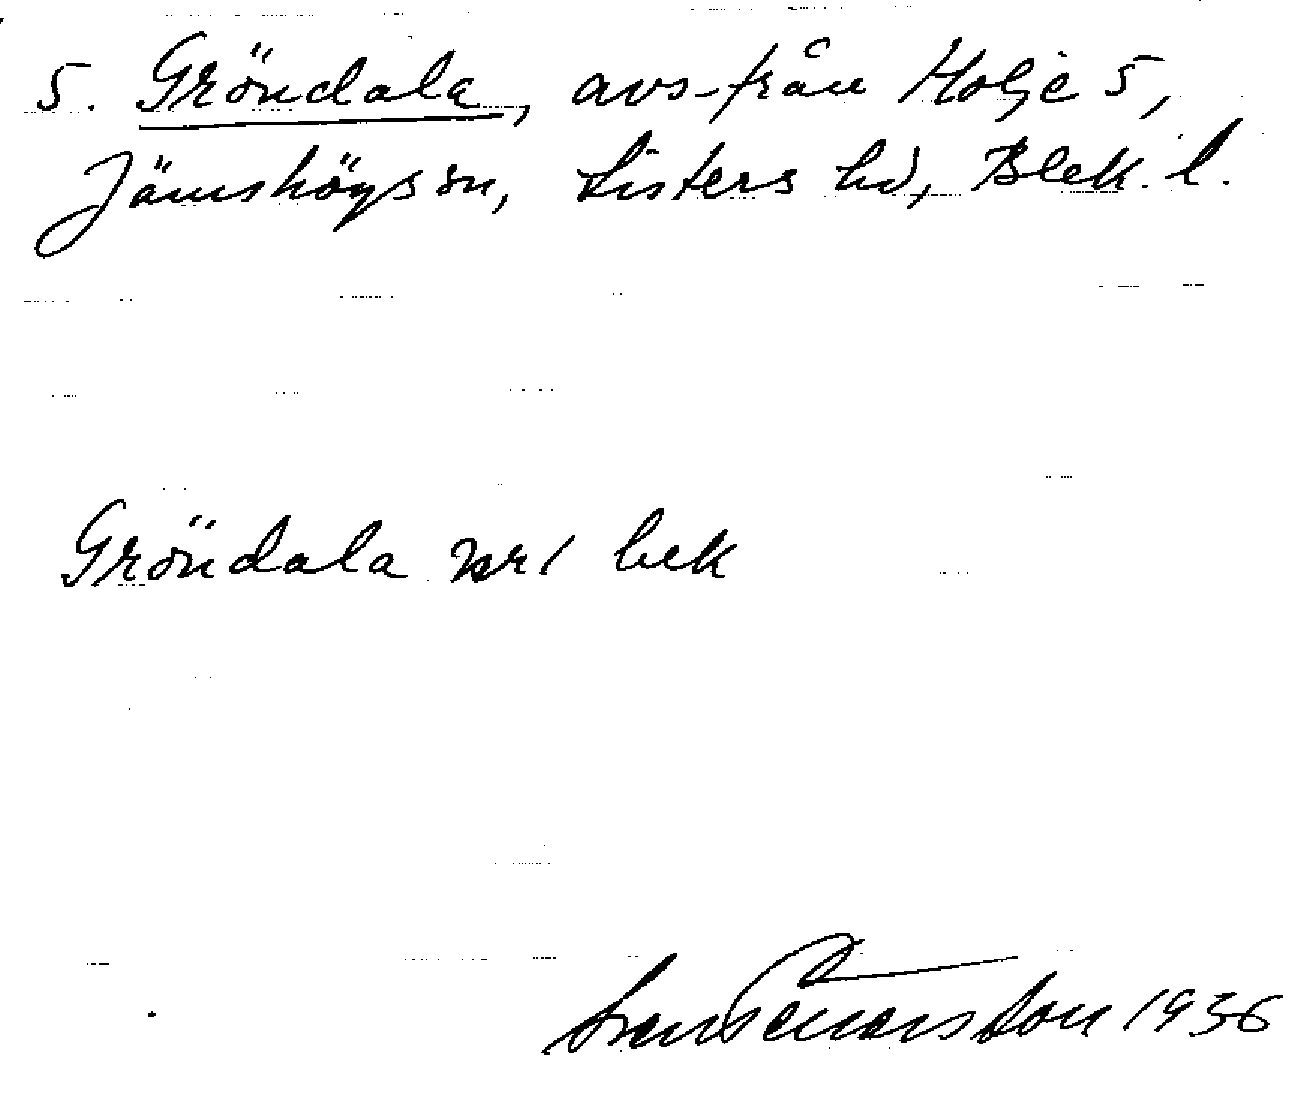 5. Gröndala, avs. från Holje 5,
Jämshögs sn, Listers hd, Blek. l.
Gröndala nr 1 bek
1936